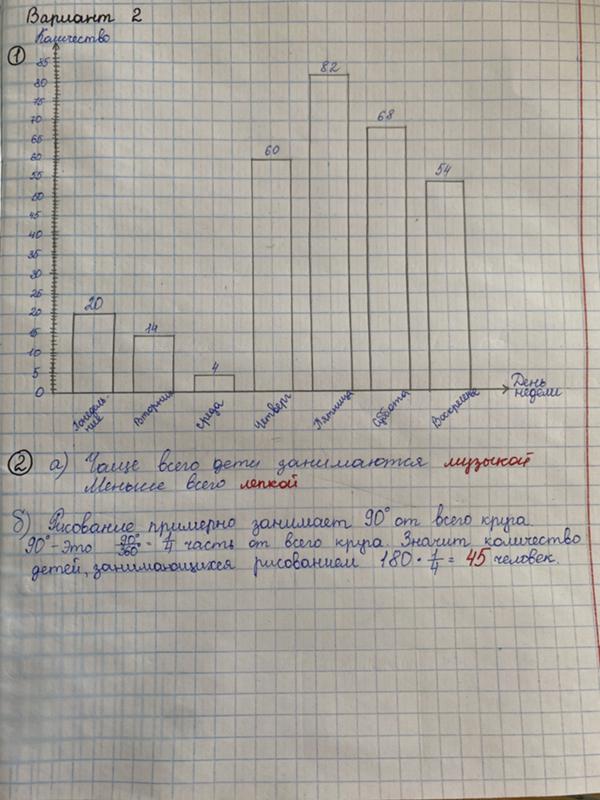 Вариант 2
Количество
1
85
80
75
70
65
60
55
50
45
40
35
30
25
20
15
10
5
0
20
14
4
60
82
68
54
Понедель-
ник
Вторник
Среда
Четверг
Пятница
Суббота
Воскресенье
День
недели
2 а) Чаще всего дети занимаются музыкой
Меньше всего лепкой
б) Рисование примерно занимает 90° от всего круга.
90° - это 90°/360° = 1/4 часть от всего круга. Значит количество
детей, занимающихся рисованием 180 · 1/4 = 45 человек.